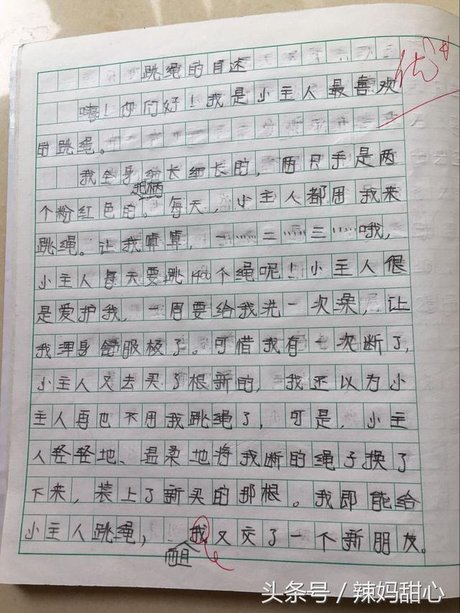 跳绳的自述
优+
嗨!你们好!我是小主人最喜欢
的跳绳。
我全身细长细长的,两只手是两
个粉红色的把柄,每天,小主人都用我来
跳绳。让我算算,一……二……三……哦,
小主人每天要跳140个绳呢!小主人很
是爱护我,一周要给我洗一次澡,让
我浑身舒服极了。可惜我有一次断了,
小主人又去买了根新的,我还以为小
主人再也不用我跳绳了,可是,小主
人轻轻地、温柔地将我断的绳子换了
下来,装上了新买的那根。我即能给
小主人跳绳,而且我又交了一个新朋友。
头条号/辣妈甜心